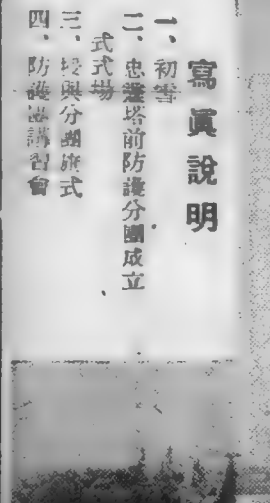 寫眞說明
一、初雪
二、忠靈塔前防護分團成立
式式場
三、授與分團旗式
四、防護團講習會